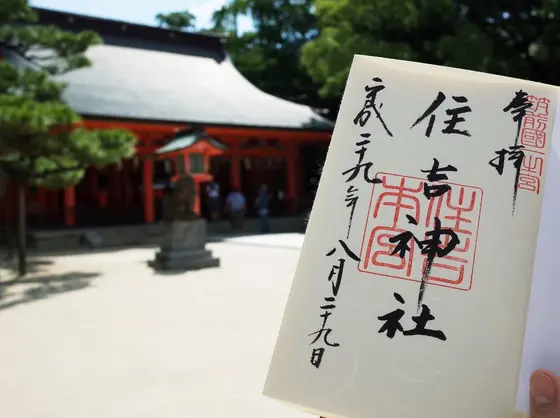 奉拝
筑前國一之宮
住吉神社
住吉本宮
平成二十九年八月二十九日